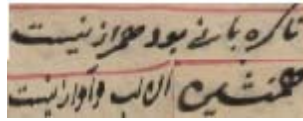 تا کره با نے بود همراز نیست
همنشین آن لب و آواز نیست